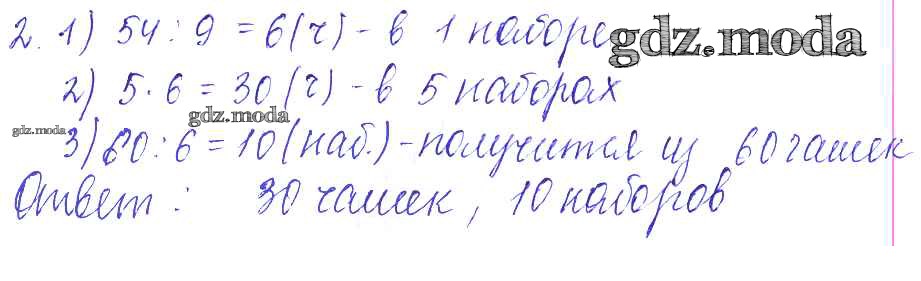 2. 1) 54 : 9 = 6 (ч) - в 1 наборе
gdz.moda
2) 5 · 6 = 30 (ч) - в 5 наборах
gdz.moda
gdz.moda
3) 60 : 6 = 10 (наб.) - получится из 60 чашек
Ответ : 30 чашек, 10 наборов